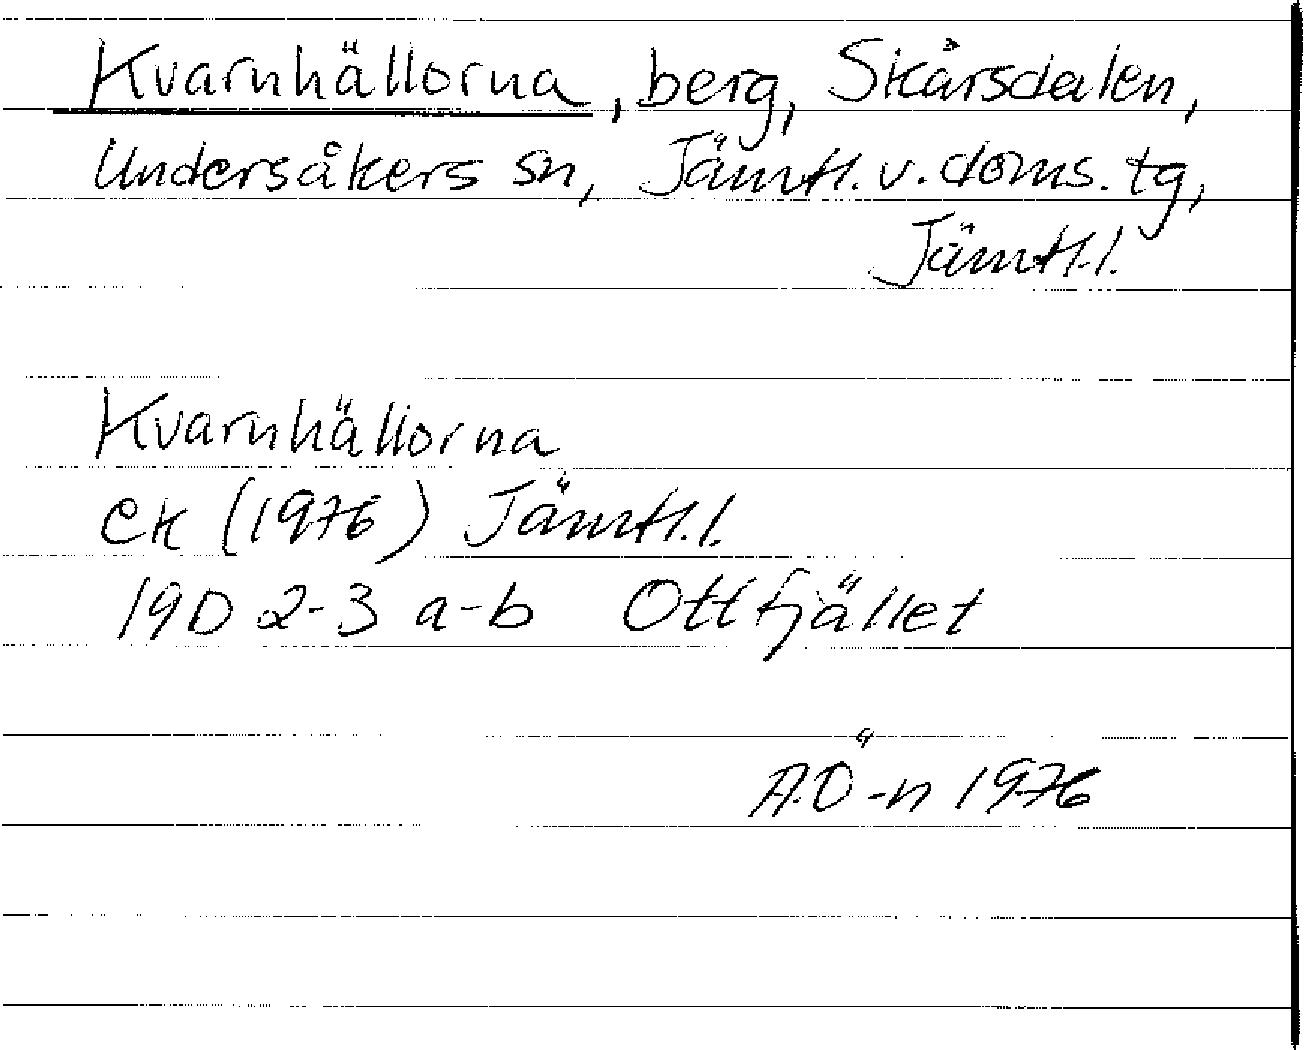 Kvarnhällorna, berg, Skårsdalen,
Undersåkers sn, Jämtl. v. doms. tg,
Jämtl. l.
Kvarnhällorna
ek (1976) Jämtl. l.
19D 2-3 a-b Ottfjället
A.Ö-n 1976